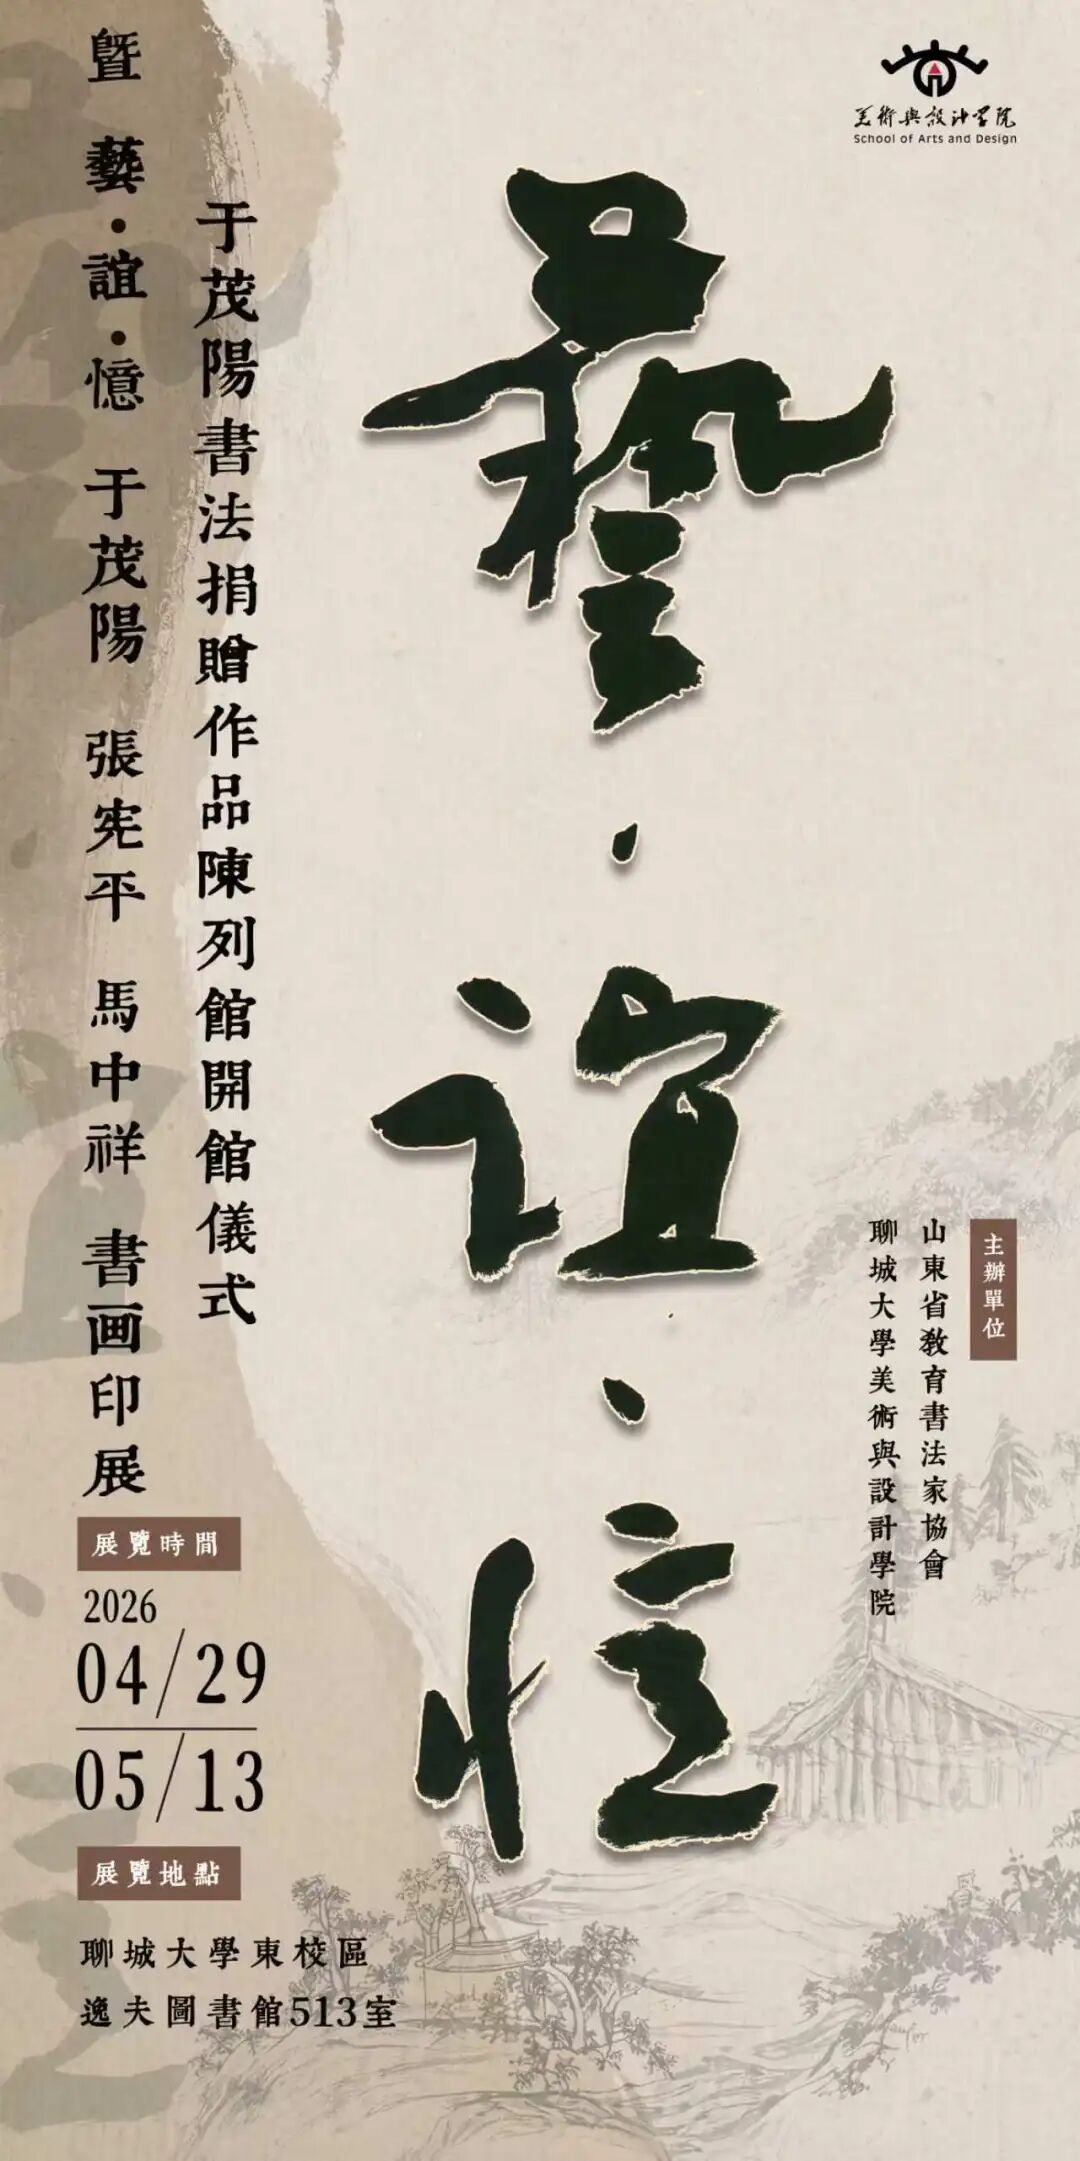 美術與設計學院
School of Arts and Design
藝·誼·憶
于茂陽書法捐贈作品陳列館開館儀式
暨 藝·誼·憶 于茂陽 張宪平 馬中祥 書画印展
主辦單位
山東省教育書法家協會
聊城大學美術與設計學院
展覽時間
2026
04/29
05/13
展覽地點
聊城大學東校區
逸夫圖書館513室